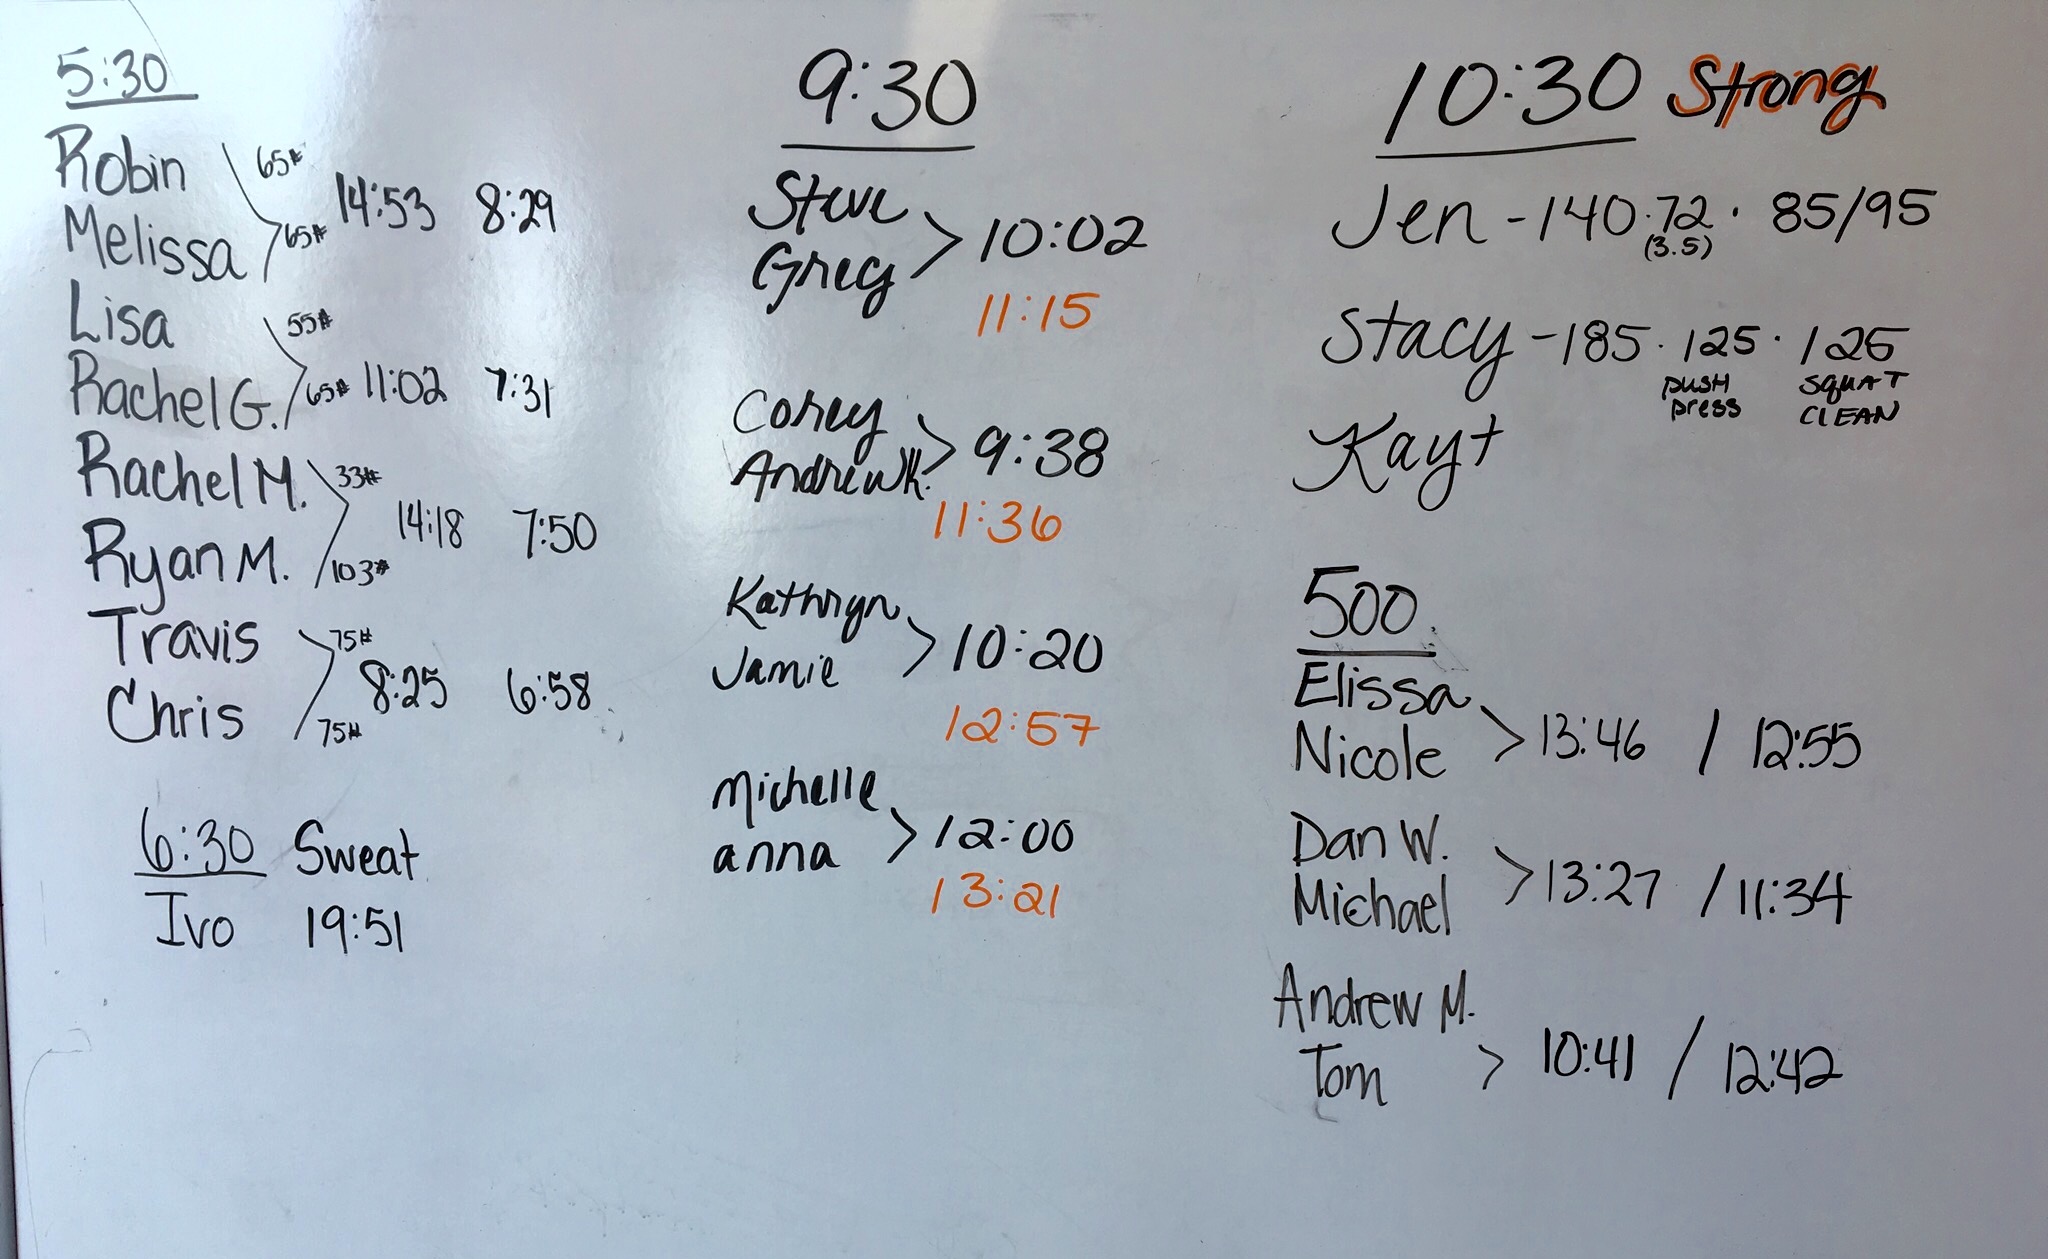 5:30
Robin 65#
14:53 8:29
Melissa 65#
Lisa 55#
Rachel G. 65# 11:02 7:31
Rachel M. 33#
14:18 7:50
Ryan M. 103#
Travis 75#
8:25 6:58
Chris 75#
6:30 Sweat
Ivo 19:51
9:30
Steve
> 10:02
Greg
11:15
Corey
> 9:38
Andrew K.
11:36
Kathryn
> 10:20
Jamie
12:57
Michelle
> 12:00
anna
13:21
10:30 Strong
Jen - 140 · 72 · 85/95
(3.5)
Stacy - 185 · 125 · 125
push press
SQUAT CLEAN
Kayt
500
Elissa
> 13:46 / 12:55
Nicole
Dan W.
> 13:27 / 11:34
Michael
Andrew M.
> 10:41 / 12:42
Tom